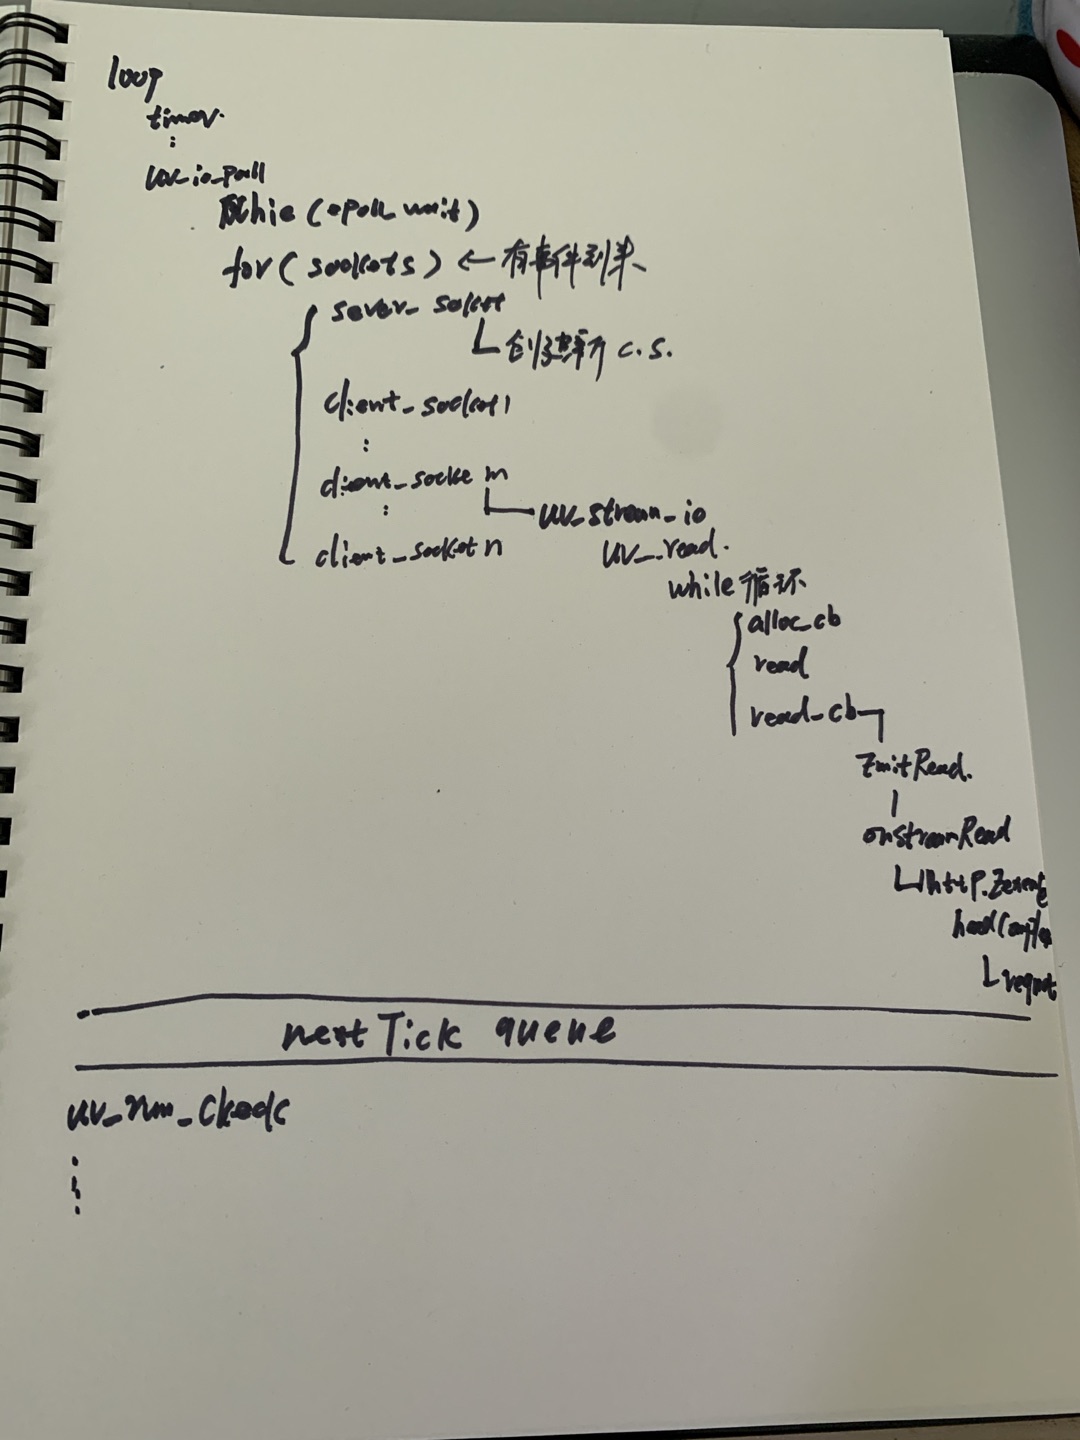 loop
timer.
:
uv_io_poll
while (epoll_wait)
for ( sockets ) ← 有事件到来、
sever_socket
创建新 c.s.
client_socket1
:
client_socke m
:
uv_stream_io
client_socket n
uv__read.
while 循环
alloc_cb
read
read_cb
EmitRead.
onStreamRead
http.Execute
headComplete
request
nextTick queue
uv_run_check